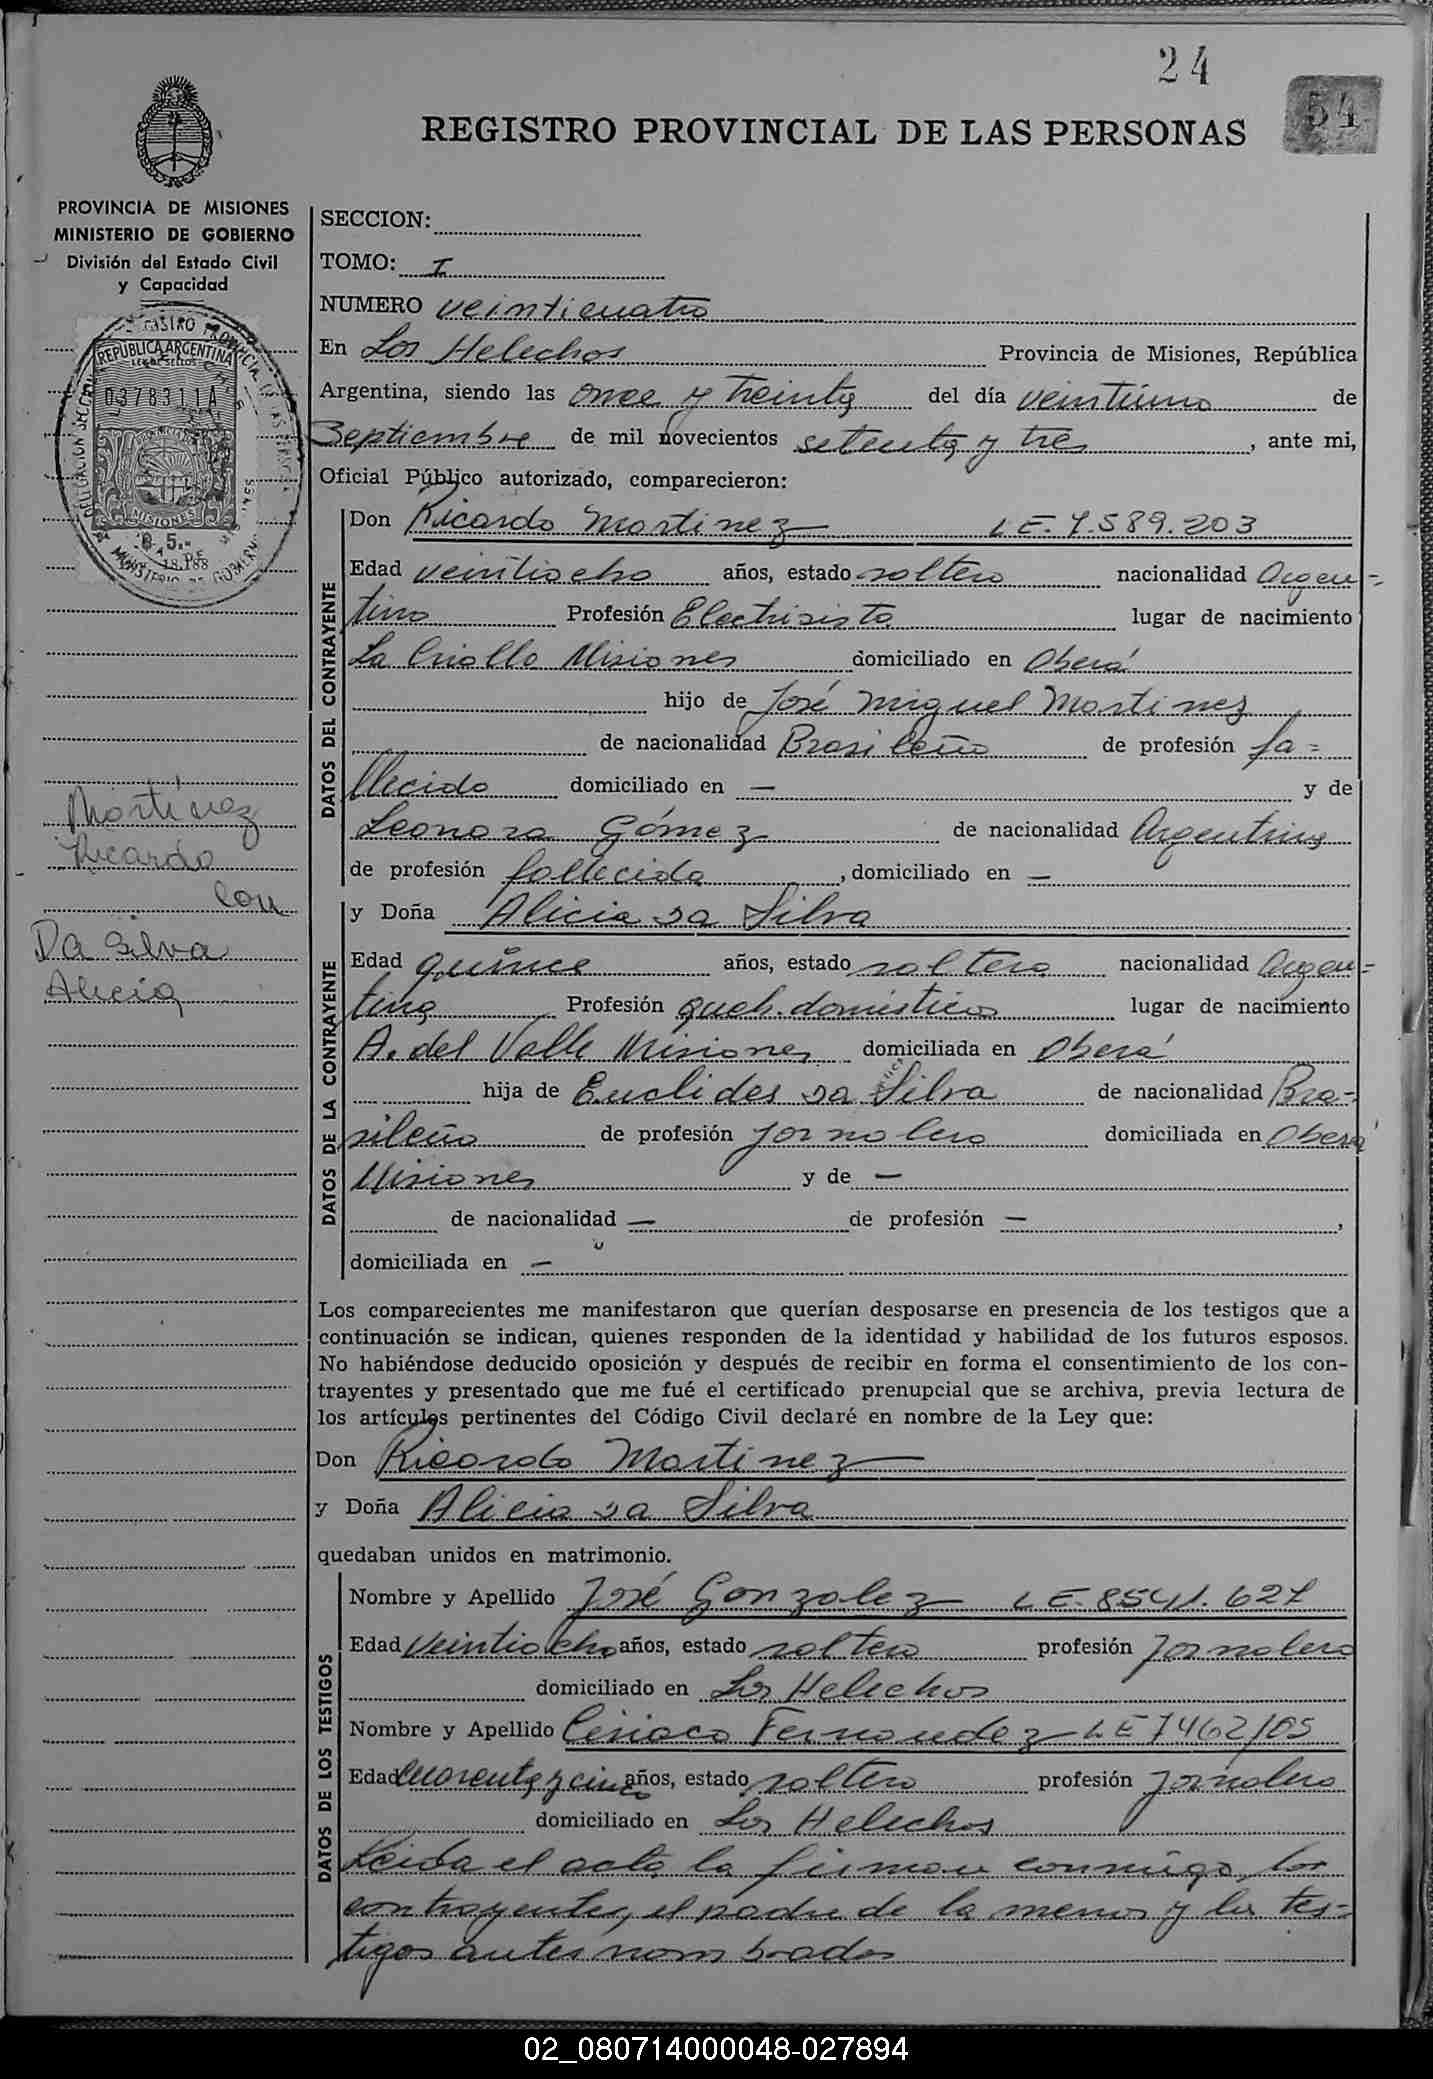 24
54
REGISTRO PROVINCIAL DE LAS PERSONAS
PROVINCIA DE MISIONES
MINISTERIO DE GOBIERNO
División del Estado Civil
y Capacidad
REPUBLICA ARGENTINA
LEY DE SELLOS
0378311A
MISIONES
$ 5.-
Martínez
Ricardo
con
Da Silva
Alicia
SECCION:
TOMO: I
NUMERO veinticuatro
En Los Helechos Provincia de Misiones, República
Argentina, siendo las once y treinta del día veintiuno de
Septiembre de mil novecientos setenta y tres, ante mi,
Oficial Público autorizado, comparecieron:
DATOS DEL CONTRAYENTE
Don Ricardo Martinez L.E. 7.589.203
Edad veintiocho años, estado soltero nacionalidad Argen=
tino Profesión Electrisista lugar de nacimiento
La Criolla Misiones domiciliado en Oberá
hijo de José Miguel Martinez
de nacionalidad Brasileño de profesión fa=
llecido domiciliado en — y de
Leonora Gómez de nacionalidad Argentina
de profesión fallecida, domiciliado en —
DATOS DE LA CONTRAYENTE
y Doña Alicia da Silva
Edad quince años, estado soltera nacionalidad Argen=
tina Profesión queh. domésticos lugar de nacimiento
A. del Valle Misiones domiciliada en Oberá
hija de Euclides da Silva de nacionalidad Bra=
sileño de profesión Jornalero domiciliada en Oberá
Misiones y de —
de nacionalidad — de profesión —,
domiciliada en —
Los comparecientes me manifestaron que querían desposarse en presencia de los testigos que a
continuación se indican, quienes responden de la identidad y habilidad de los futuros esposos.
No habiéndose deducido oposición y después de recibir en forma el consentimiento de los con-
trayentes y presentado que me fué el certificado prenupcial que se archiva, previa lectura de
los artículos pertinentes del Código Civil declaré en nombre de la Ley que:
Don Ricardo Martinez
y Doña Alicia da Silva
quedaban unidos en matrimonio.
DATOS DE LOS TESTIGOS
Nombre y Apellido José Gonzalez L.E. 8541.627
Edad veintiocho años, estado soltero profesión Jornalero
domiciliado en Los Helechos
Nombre y Apellido Ciriaco Fernandez L E 7462105
Edad cuarenta y cinco años, estado soltero profesión Jornalero
domiciliado en Los Helechos
Leida el acta la firman conmigo los
contrayentes, el padre de la menor y los tes=
tigos antes nombrados
02_080714000048-027894